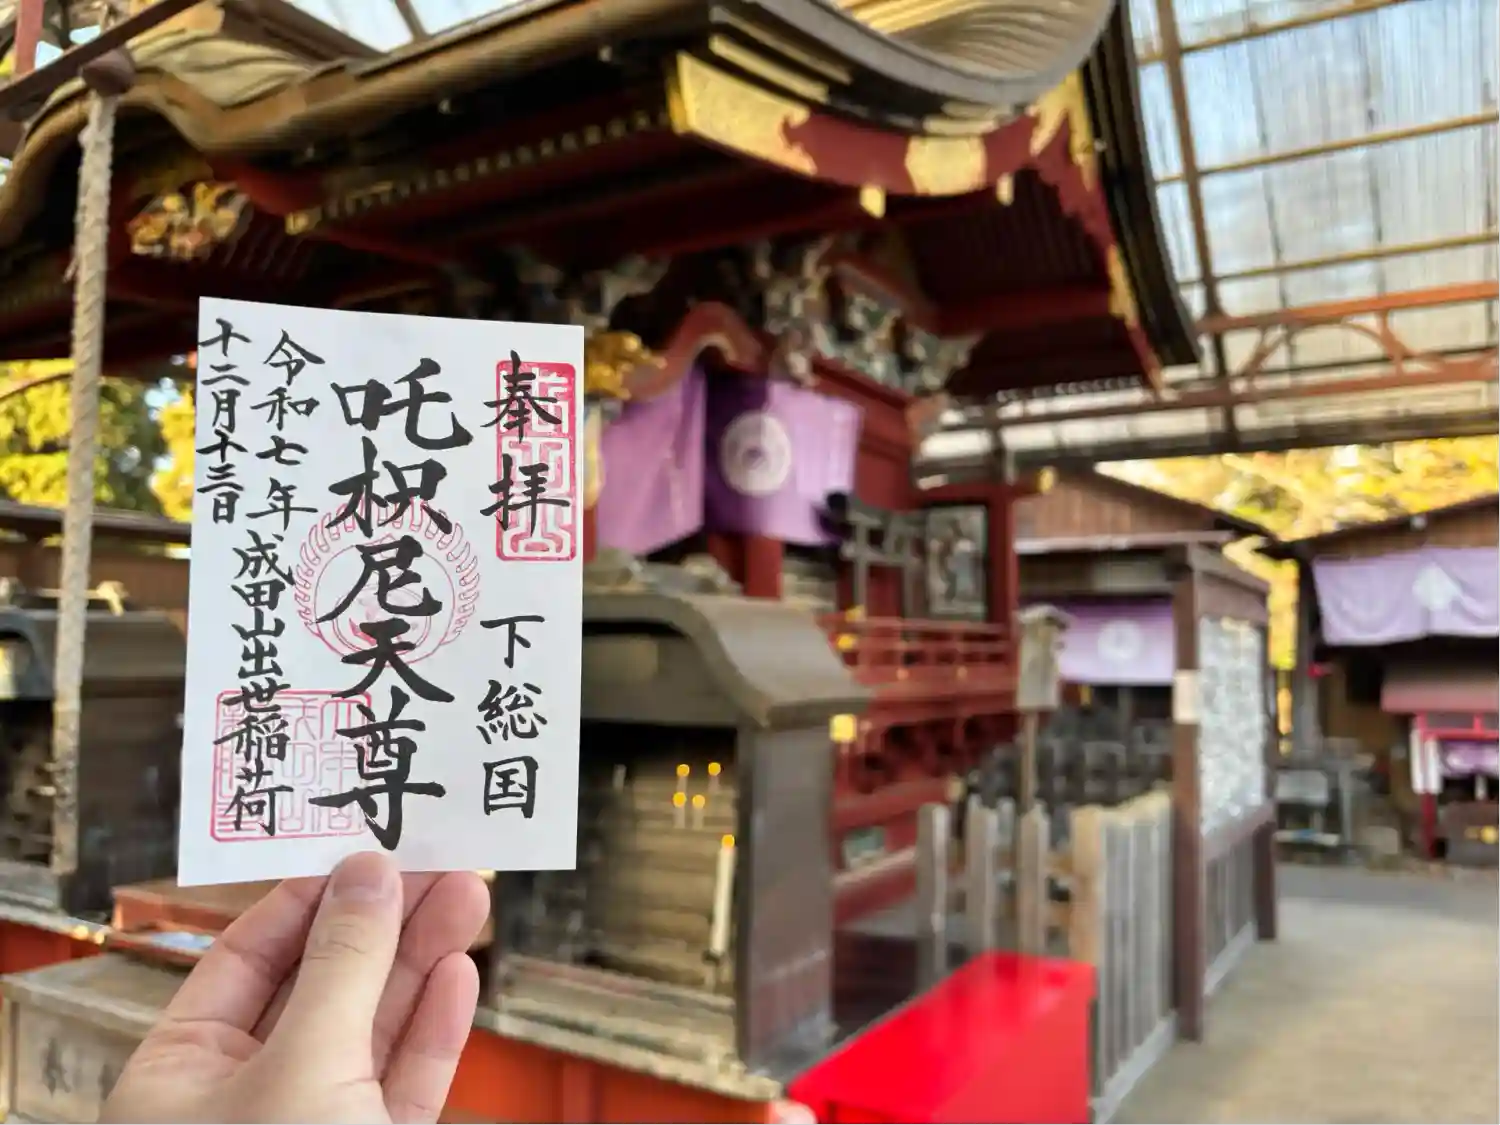 奉拝
下総国
吒枳尼天尊
令和七年
十二月十三日
成田山出世稲荷